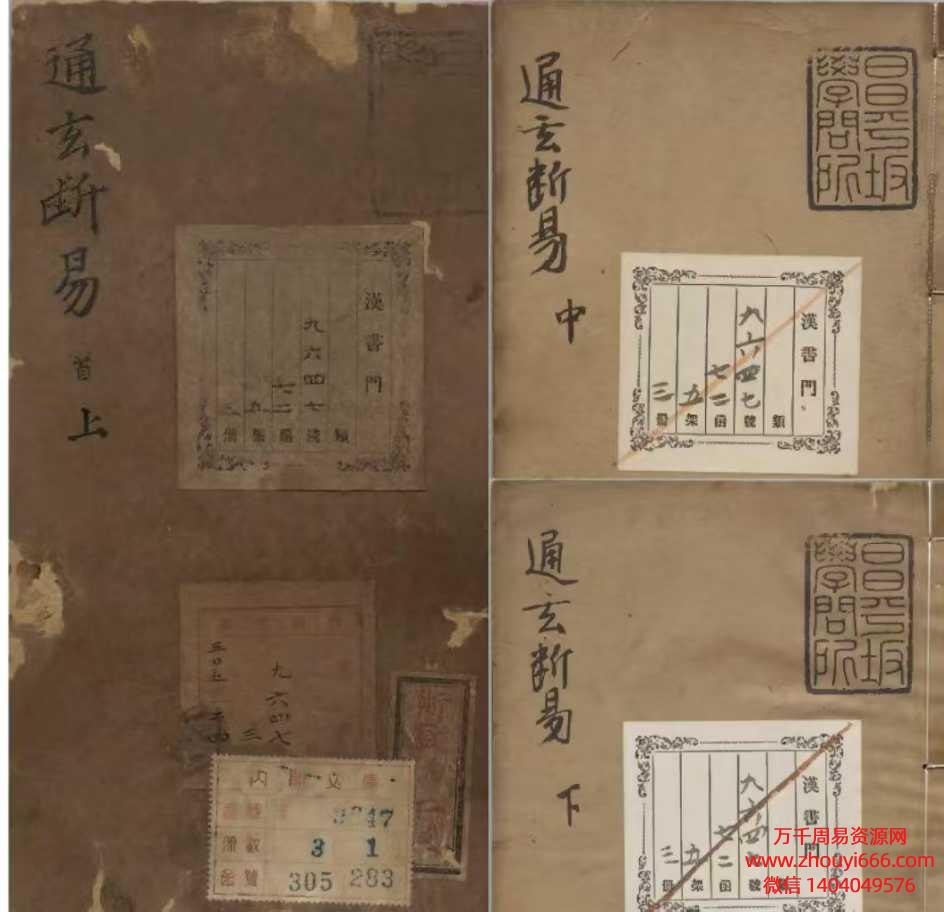 通玄断易
首
上
漢書門
類
九六四七號
七二函
五架
三冊
九六四七
三
内閣文庫
番號
3
1
冊數
函號
305
283
通玄断易
中
昌平坂
學問所
漢書門
類
九六四七號
七二函
五架
三冊
通玄断易
下
昌平坂
學問所
漢書門
類
九六四七號
七二函
五架
三冊
万千周易资源网
www.zhouyi666.com
微信 1404049576